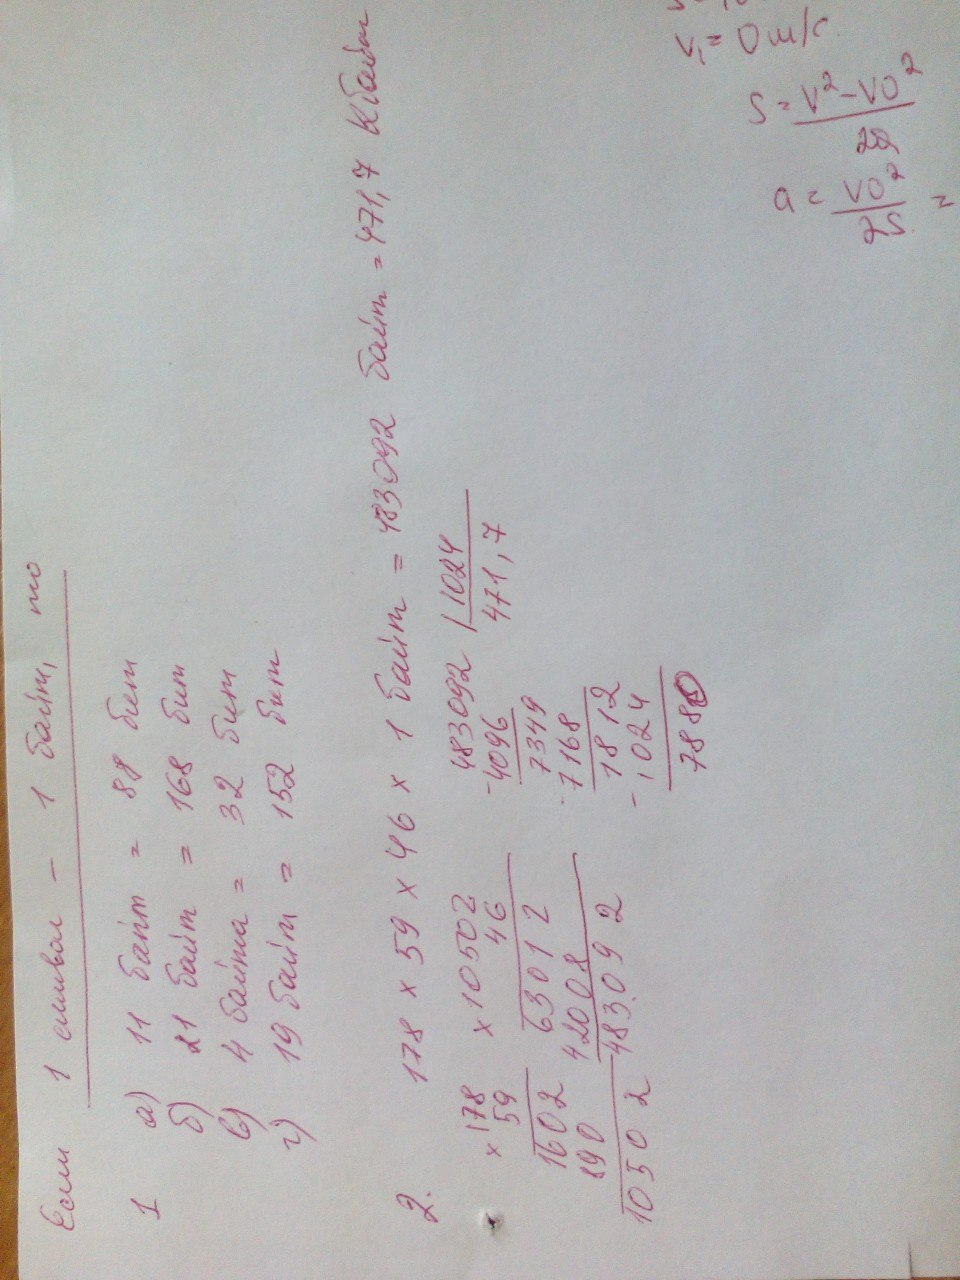 Если 1 символ - 1 байт, то
1 а) 11 байт = 88 бит
б) 21 байт = 168 бит
в) 4 байта = 32 бит
г) 19 байт = 152 бит
2. 178 x 59 x 46 x 1 байт = 483092 байт = 471,7 Кбайт
x 178
59
1602
890
10502
x 10502
46
63012
42008
483092
483092 | 1024
471,7
- 4096
7349
- 7168
1812
- 1024
788
V₁ = 0 м/с
S = V² - VO²
2a
a = VO² =
2S